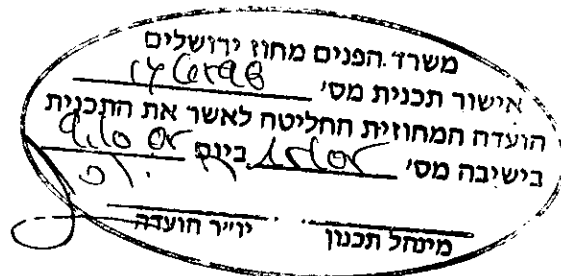 משרד הפנים מחוז ירושלים
אישור תכנית מס'
הועדה המחוזית החליטה לאשר את התכנית
בישיבה מס' ביום
מינהל תכנון יו"ר הועדה